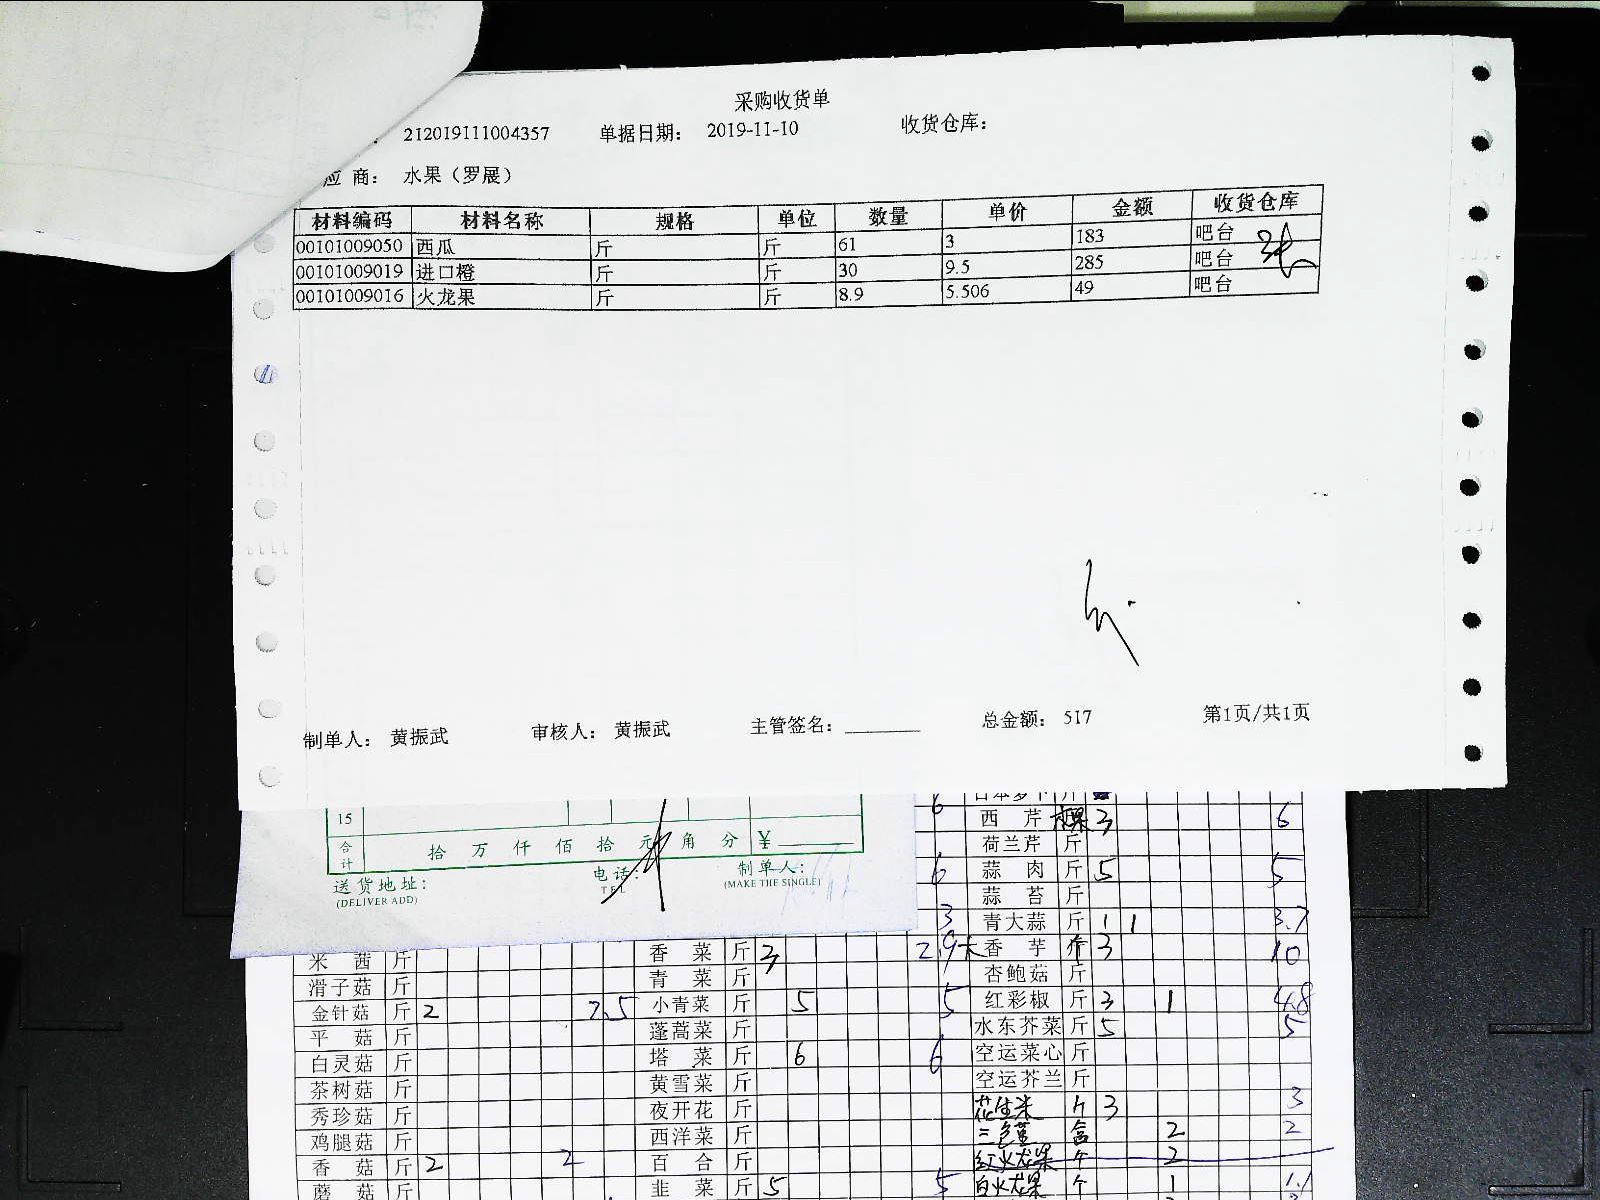 采购收货单
212019111004357 单据日期： 2019-11-10 收货仓库：
应 商： 水果（罗展）
材料编码 材料名称 规格 单位 数量 单价 金额 收货仓库
00101009050 西瓜 斤 斤 61 3 183 吧台
00101009019 进口橙 斤 斤 30 9.5 285 吧台
00101009016 火龙果 斤 斤 8.9 5.506 49 吧台
制单人： 黄振武 审核人： 黄振武 主管签名： 总金额： 517 第1页/共1页
15
合计 拾 万 仟 佰 拾 元 角 分 ¥
送货地址：
(DELIVER ADD)
电话：
TEL
制单人：
(MAKE THE SINGLE)
6
西 芹 3 6
荷兰芹 斤
6 蒜 肉 斤 5 5
蒜 苔 斤
3 青大蒜 斤 1 1 3.7
米 茜 斤 香 菜 斤 3 2.9 大香 芋 个 3 10
滑子菇 斤 青 菜 斤 杏鲍菇 斤
金针菇 斤 2 7.5 小青菜 斤 5 5 红彩椒 斤 3 1 4.8
平 菇 斤 蓬蒿菜 斤 水东芥菜 斤 5 5
白灵菇 斤 塔 菜 斤 6 6 空运菜心 斤
茶树菇 斤 黄雪菜 斤 空运芥兰 斤
秀珍菇 斤 夜开花 斤 花生米 斤 3 3
鸡腿菇 斤 西洋菜 斤 三色堇 盒 2 2
香 菇 斤 2 2 百 合 斤 红火龙果 个 2
蘑 菇 斤 韭 菜 斤 5 5 白火龙果 个 1 1.1